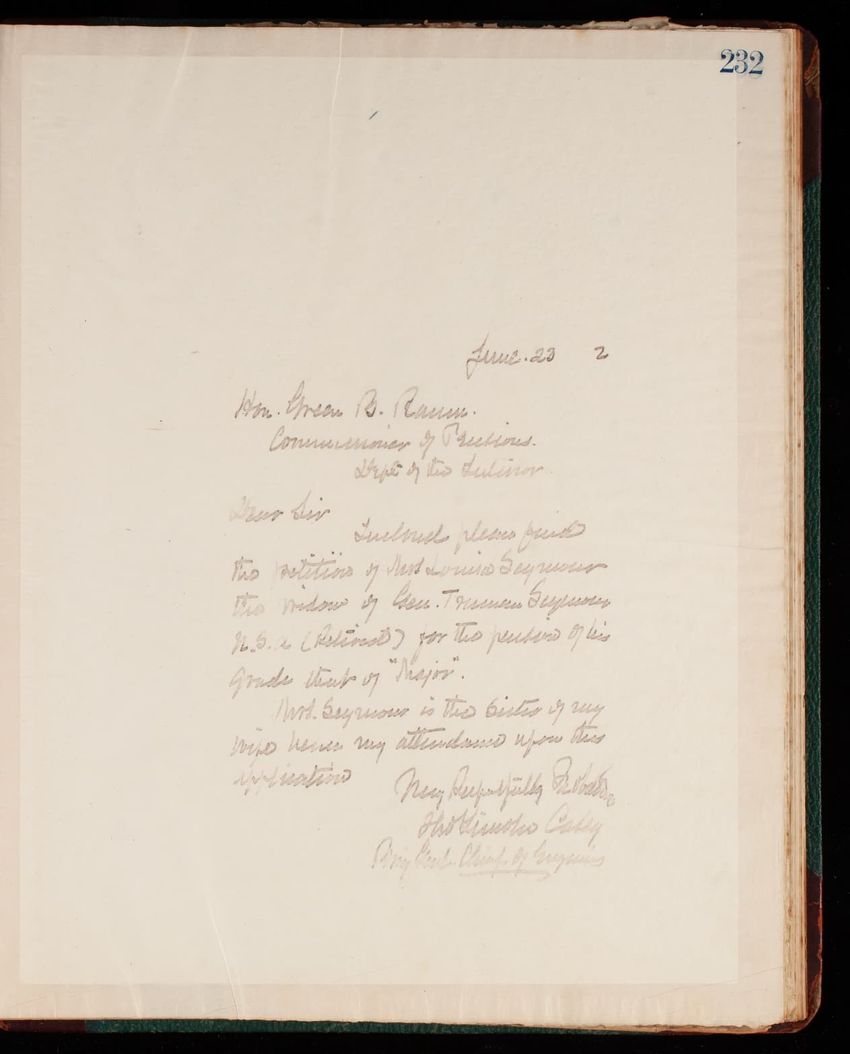 232
June. 23 2
Hon. Green B. Raum.
Commissioner of Pensions.
Dept of the Interior
Dear Sir
Inclosed please find
the petition of Mrs Louisa Seymour
the widow of Gen. Truman Seymour
U.S.A (Retired) for the pension of his
Grade that of "Major".
Mrs. Seymour is the Sister of my
wife hence my attendance upon this
application
Very Respectfully
Thos Lincoln Casey
Brig Genl. Chief of Engineers